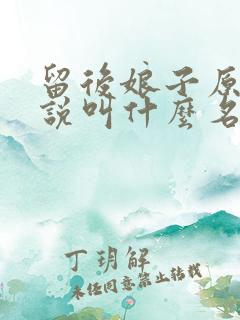 留後娘子原
說叫什麼名
丁玥解
未经同意禁止转载